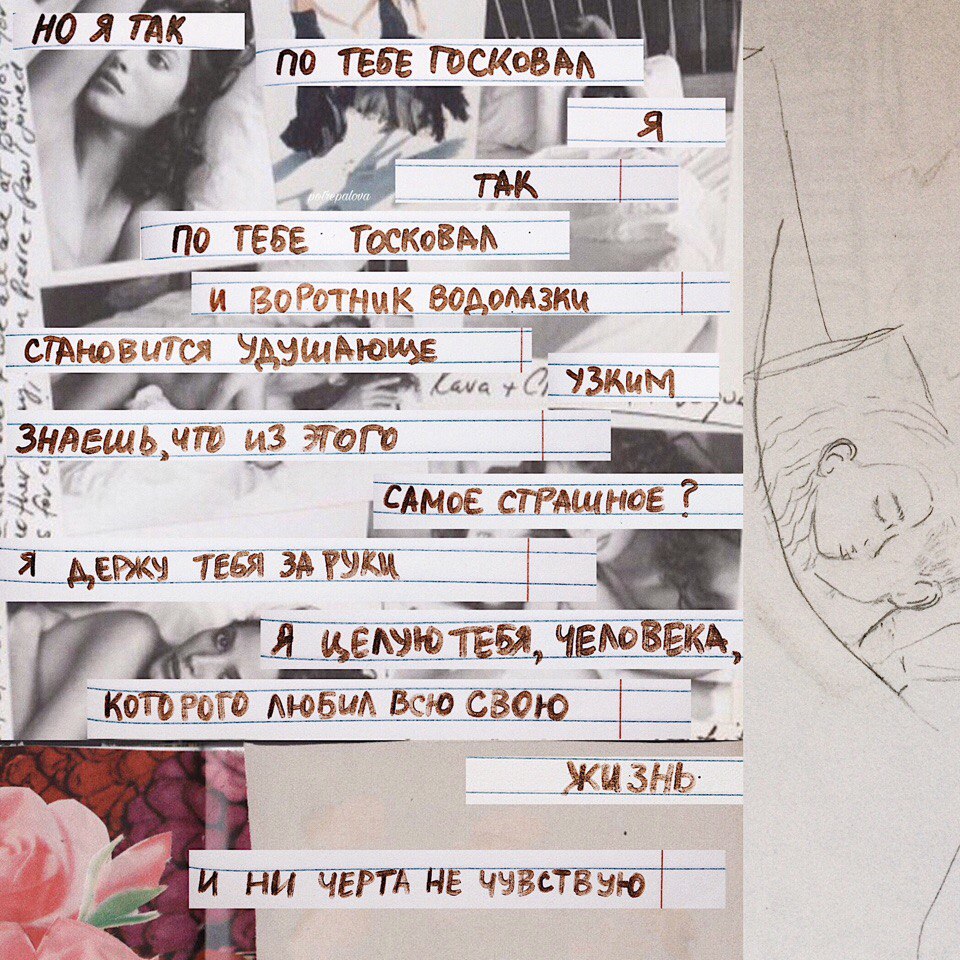 НО Я ТАК
ПО ТЕБЕ ТОСКОВАЛ
Я
ТАК
potrepalova
ПО ТЕБЕ ТОСКОВАЛ
И ВОРОТНИК ВОДОЛАЗКИ
СТАНОВИТСЯ УДУШАЮЩЕ
УЗКИМ
Kava +
ЗНАЕШЬ, ЧТО ИЗ ЭТОГО
САМОЕ СТРАШНОЕ?
Я ДЕРЖУ ТЕБЯ ЗА РУКИ
Я ЦЕЛУЮ ТЕБЯ, ЧЕЛОВЕКА,
КОТОРОГО ЛЮБИЛ ВСЮ СВОЮ
ЖИЗНЬ
И НИ ЧЕРТА НЕ ЧУВСТВУЮ